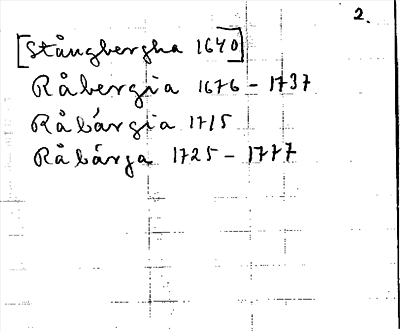 2.
[Stångbergha 1640]
Råbergia 1676 - 1737
Råbárgia 1715
Råbárga 1725 - 1777